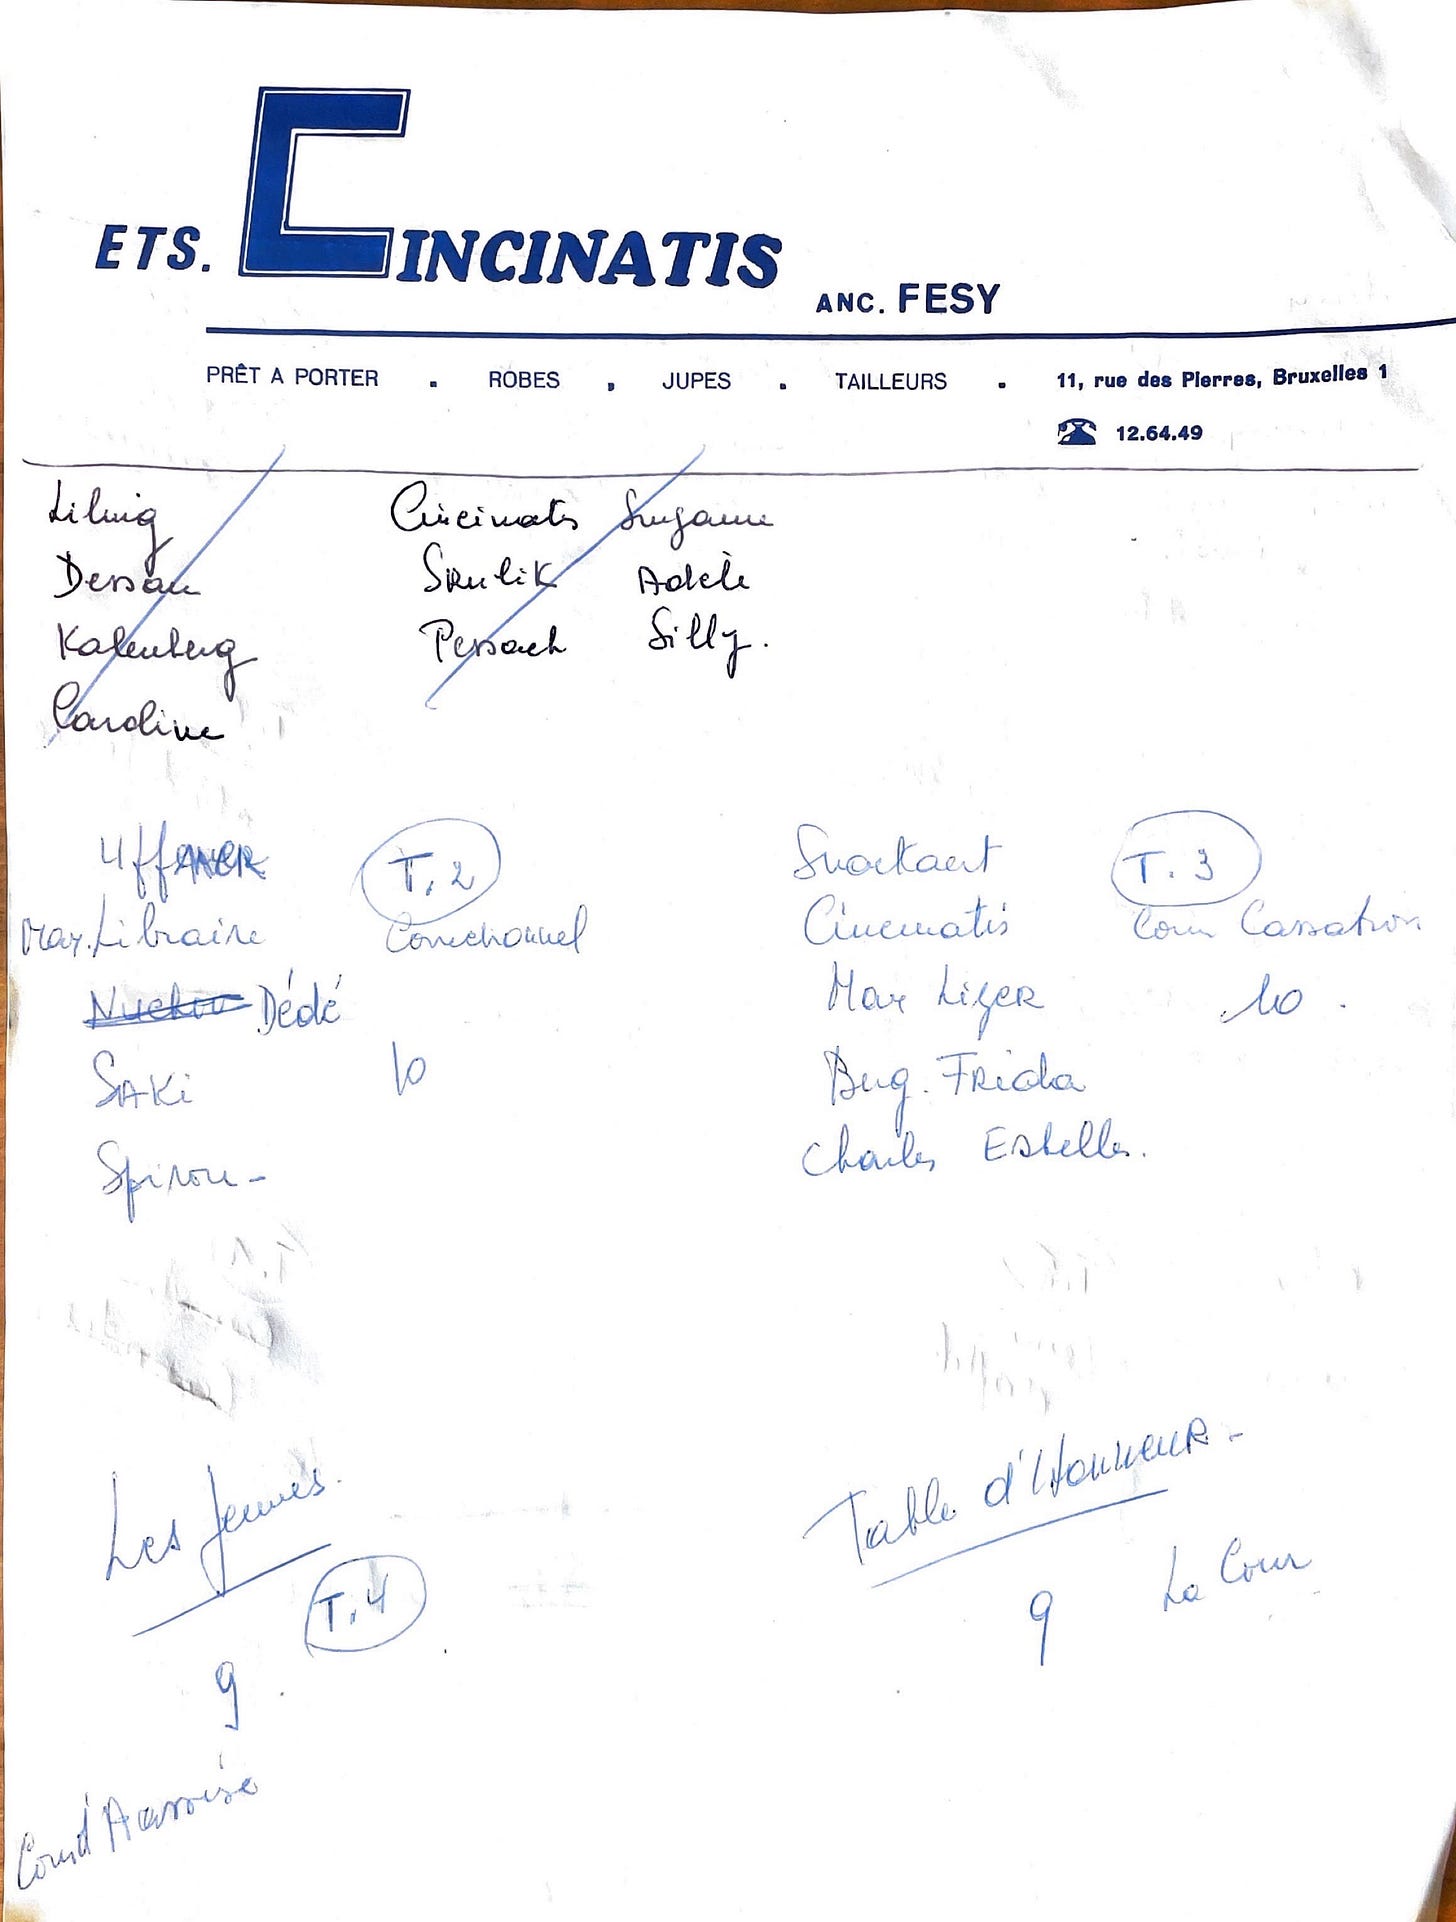 ETS. CINCINATIS ANC. FESY
PRÊT A PORTER . ROBES , JUPES . TAILLEURS . 11, rue des Pierres, Bruxelles 1
☎ 12.64.49
Cincinatis Suzanne
Dessau
Srulik Adèle
Kalenberg
Pessach Silly.
Caroline
T.2
T.3
Max. Libraire Correctionnel
Cincinatis Cour Cassation
Dédé
Max Liger 10.
SAKi 10
Bug. FRida
Spirou-
Charles Estelle.
Les Jeunes.
T.4
9
Table d'Honneur-
9 La Cour
Cour d'Assise